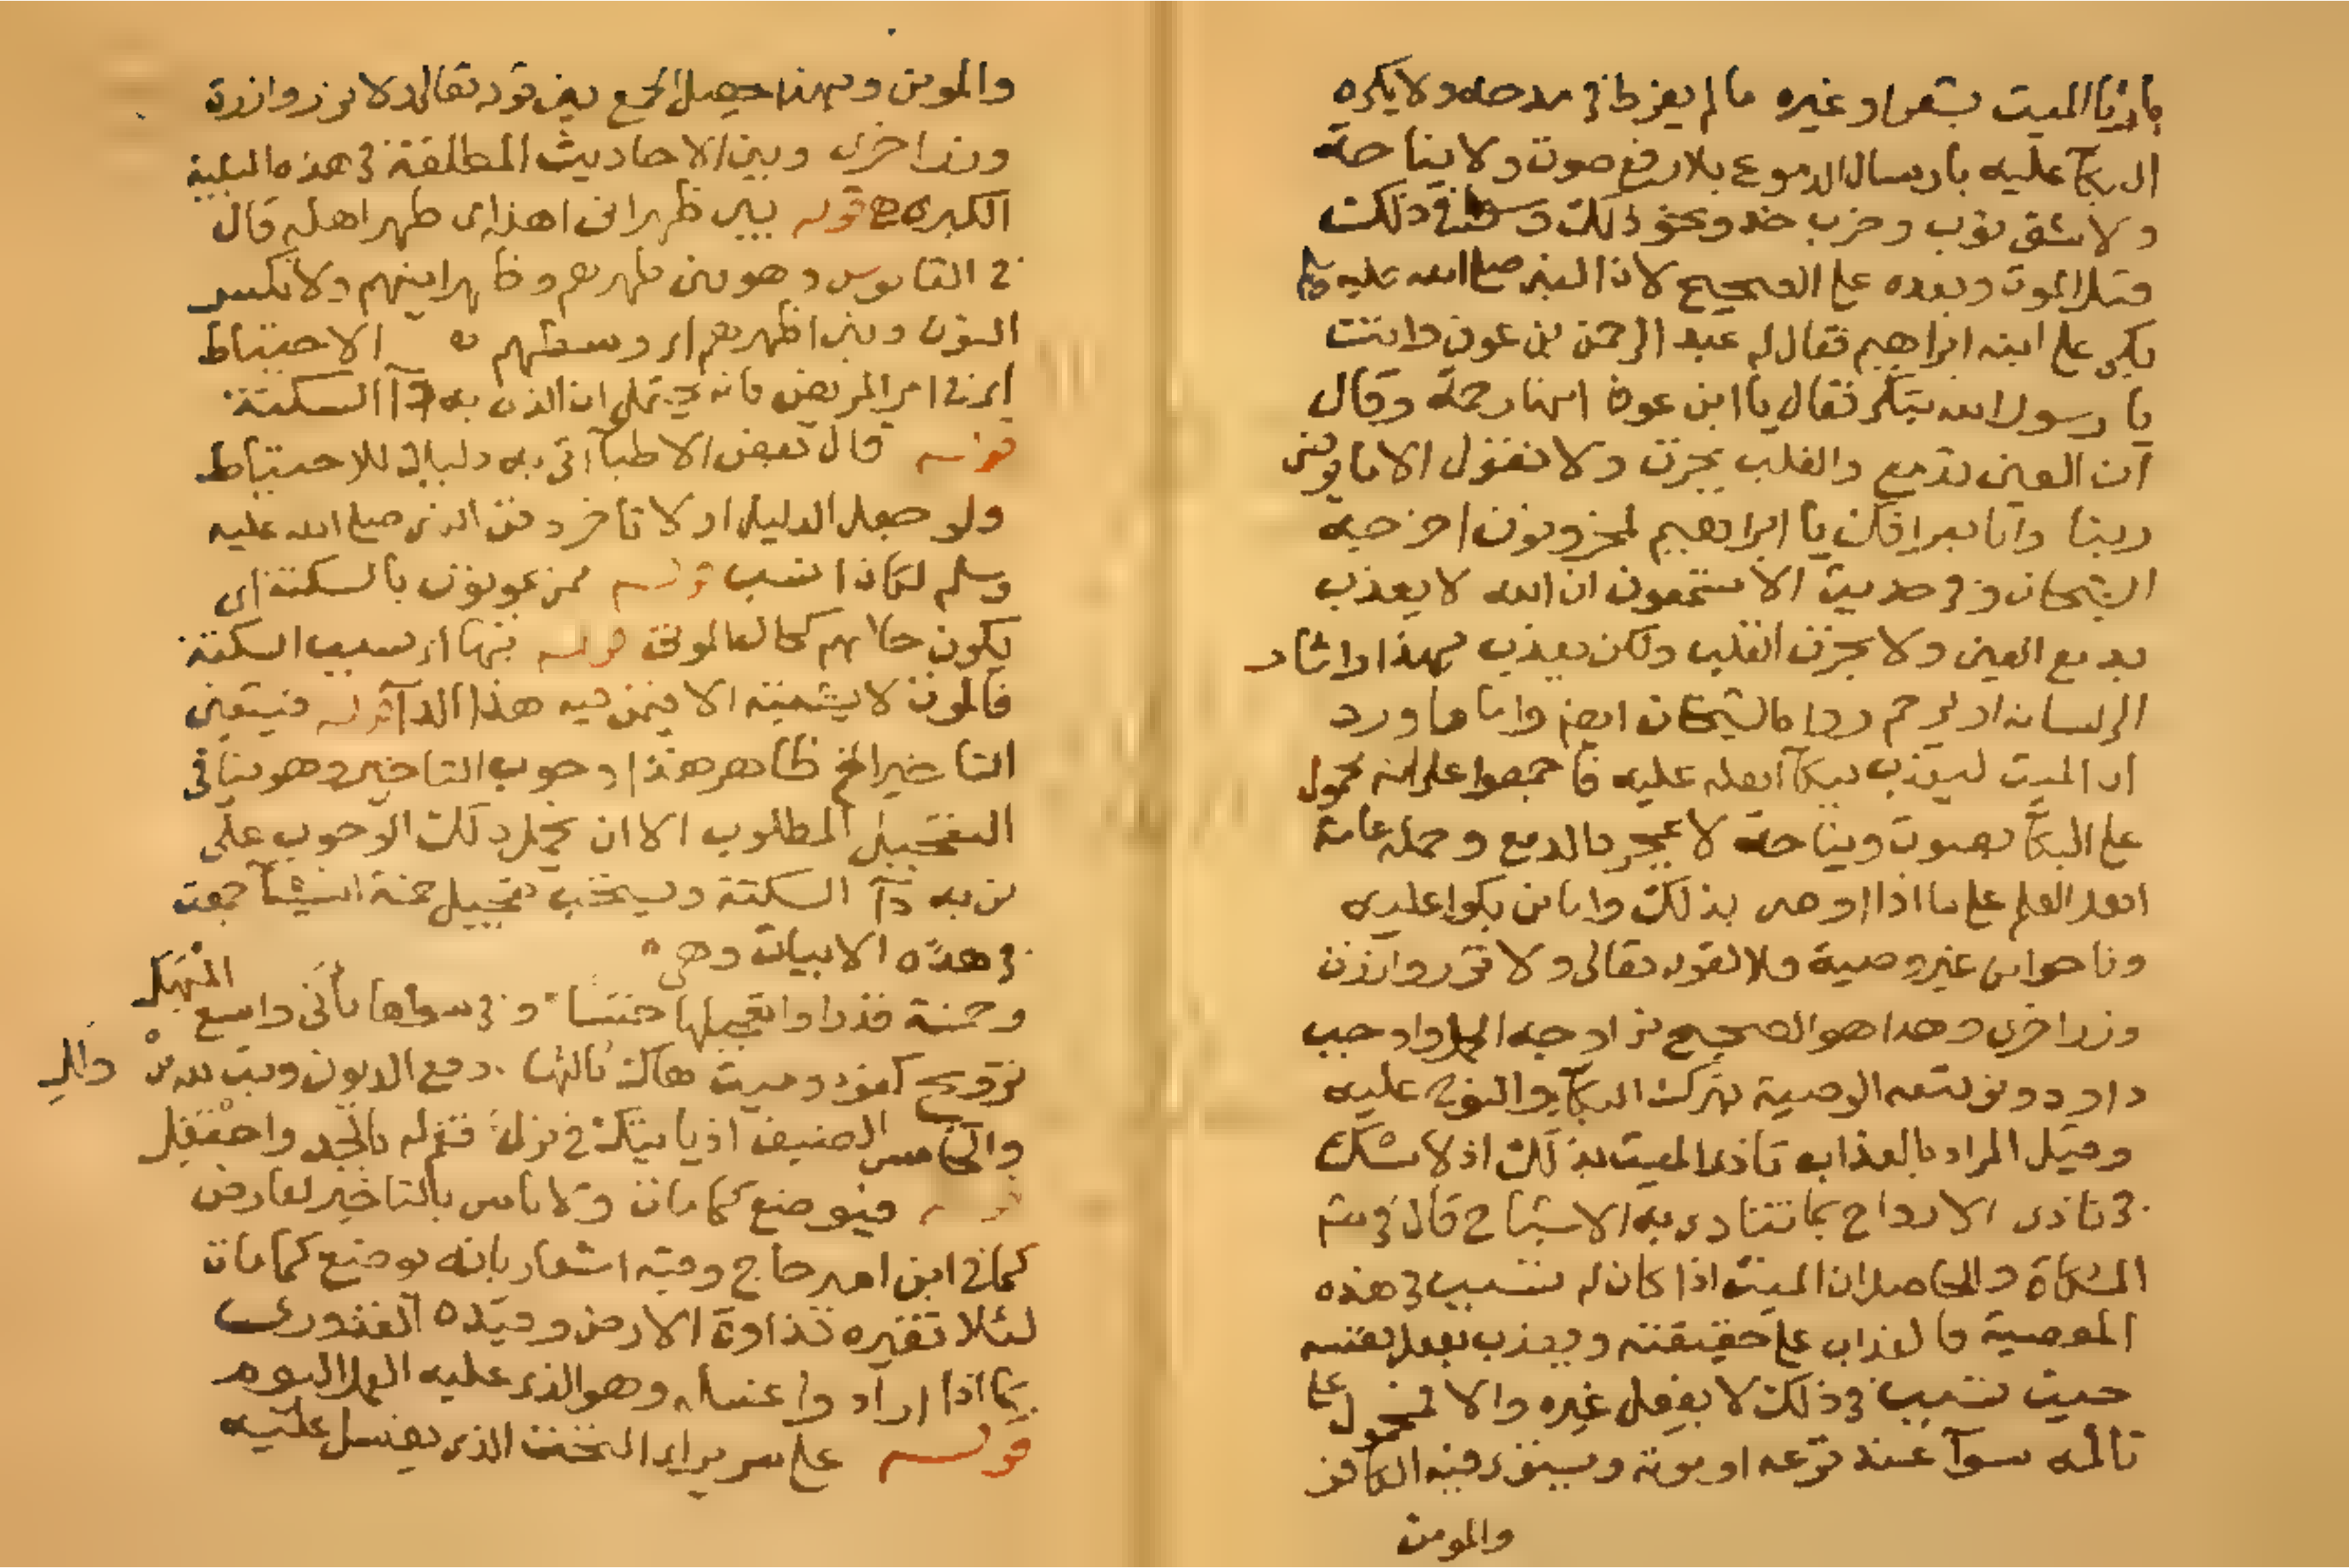 بارثا الميت بشعر او غيره ما لم يفرط في مدحه ولا يكره
البكآ عليه بارسال الدموع بلا رفع صوت ولا نياحة
ولا شق ثوب وضرب خد ونحو ذلك وسوا في ذلك
قبل الموت وبعده على الصحيح لان النبي صلى الله عليه وسلم
بكى على ابنه ابراهيم فقال له عبد الرحمن بن عوف وانت
يا رسول الله تبكي فقال يا ابن عوف انها رحمة وقال
ان العين تدمع والقلب يحزن ولا نقول الا ما يرضي
ربنا وانا بفراقك يا ابراهيم لمحزونون اخرجه
الشيخان وفي حديث الا تسمعون ان الله لا يعذب
بدمع العين ولا بحزن القلب ولكن يعذب بهذا واشار
الى لسانه او يرحم رواه الشيخان ايضا واما ما ورد
ان الميت ليعذب ببكآ اهله عليه فاجمعوا على انه محمول
على البكآ بصوت ونياحة لا بمجرد الدمع وحمله عامة
اهل العلم على ما اذا اوصى بذلك واما من بكوا عليه
وناحوا من غير وصية فلا لقوله تعالى ولا تزر وازرة
وزر اخرى وهذا هو الصحيح نز اوجه
داود ومن تبعه الوصية بترك البكآ والنوح عليه
وقيل المراد بالعذاب تاذى الميت بذلك اذ لا شك
في تاذى الارواح بما تتاذى به الاشباح قال في شرح
المشكاة والحاصل ان الميت اذا كان له تسبب في هذه
المعصية فالعذاب على حقيقته ويعذب بفعل نفسه
حيث تسبب في ذلك لا بفعل غيره والا فمحمول على
تالمه سوآ عند نزعه او موته ويستوي فيه الكافر
والمومن
والمومن وبهذا حصل الجمع بين قوله تعالى ولا تزر وازرة
وزر اخرى وبين الاحاديث المطلقة في هذه البلية
الكبرى قوله بين ظهراني اهله اى ظهر اهله قال
في القاموس وهو بين ظهرهم وظهرانيهم ولا تكسر
النون وبين اظهرهم اى وسطهم الاحتياط
اى في امر المريض فانه يحتمل ان الذى به دآ السكتة
قوله قال بعض الاطبآ اتى به دليلا للاحتياط
ولو جعل الدليل اولا تاخر دفن النبي صلى الله عليه
وسلم لكان انسب قوله ممن يموتون بالسكتة اى
يكون حالهم كحال الموتى قوله بها اى بسبب السكتة
فالموت لا يشتبه الا فيمن فيه هذا الدآ قوله فيتعين
التاخير الخ ظاهر هذا وجوب التاخير وهو ينافى
التعجيل المطلوب الا ان يحمل ذلك الوجوب على
من به دآ السكتة ويستحب تعجيل خمسة اشيآ جمعت
في هذه الابيات وهي
وخمسة قدرا وا تعجيلها حسنا وفي سواها تأنى واسع المهل
تزويج كفؤ وميت هاك ثالثها دفع الديون وتب لله من زلل
والخامس الضيف اذ ياتيك في نزل فقم له بالجد واحتفل
قوله فيوضع كما مات ولا باس بالتاخير لعارض
كما في ابن امير حاج وفيه اشعار بانه يوضع كما مات
لئلا تغيره نداوة الارض وقيده القدورى
بما اذا ارادوا غسله وهو الذى عليه العمل اليوم
قوله على سرير اى التخت الذى يغسل عليه